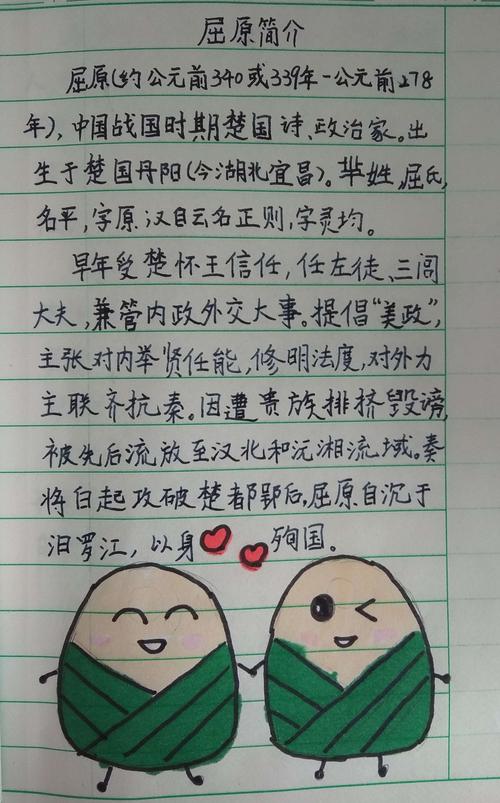 屈原简介
屈原(约公元前340或339年-公元前278
年),中国战国时期楚国诗、政治家。出
生于楚国丹阳(今湖北宜昌)。芈姓,屈氏,
名平,字原,汉自云名正则,字灵均。
早年受楚怀王信任,任左徒、三闾
大夫,兼管内政外交大事。提倡“美政”,
主张对内举贤任能,修明法度,对外力
主联齐抗秦。因遭贵族排挤毁谤,
被先后流放至汉北和沅湘流域。秦
将白起攻破楚都郢后,屈原自沉于
汨罗江,以身殉国。